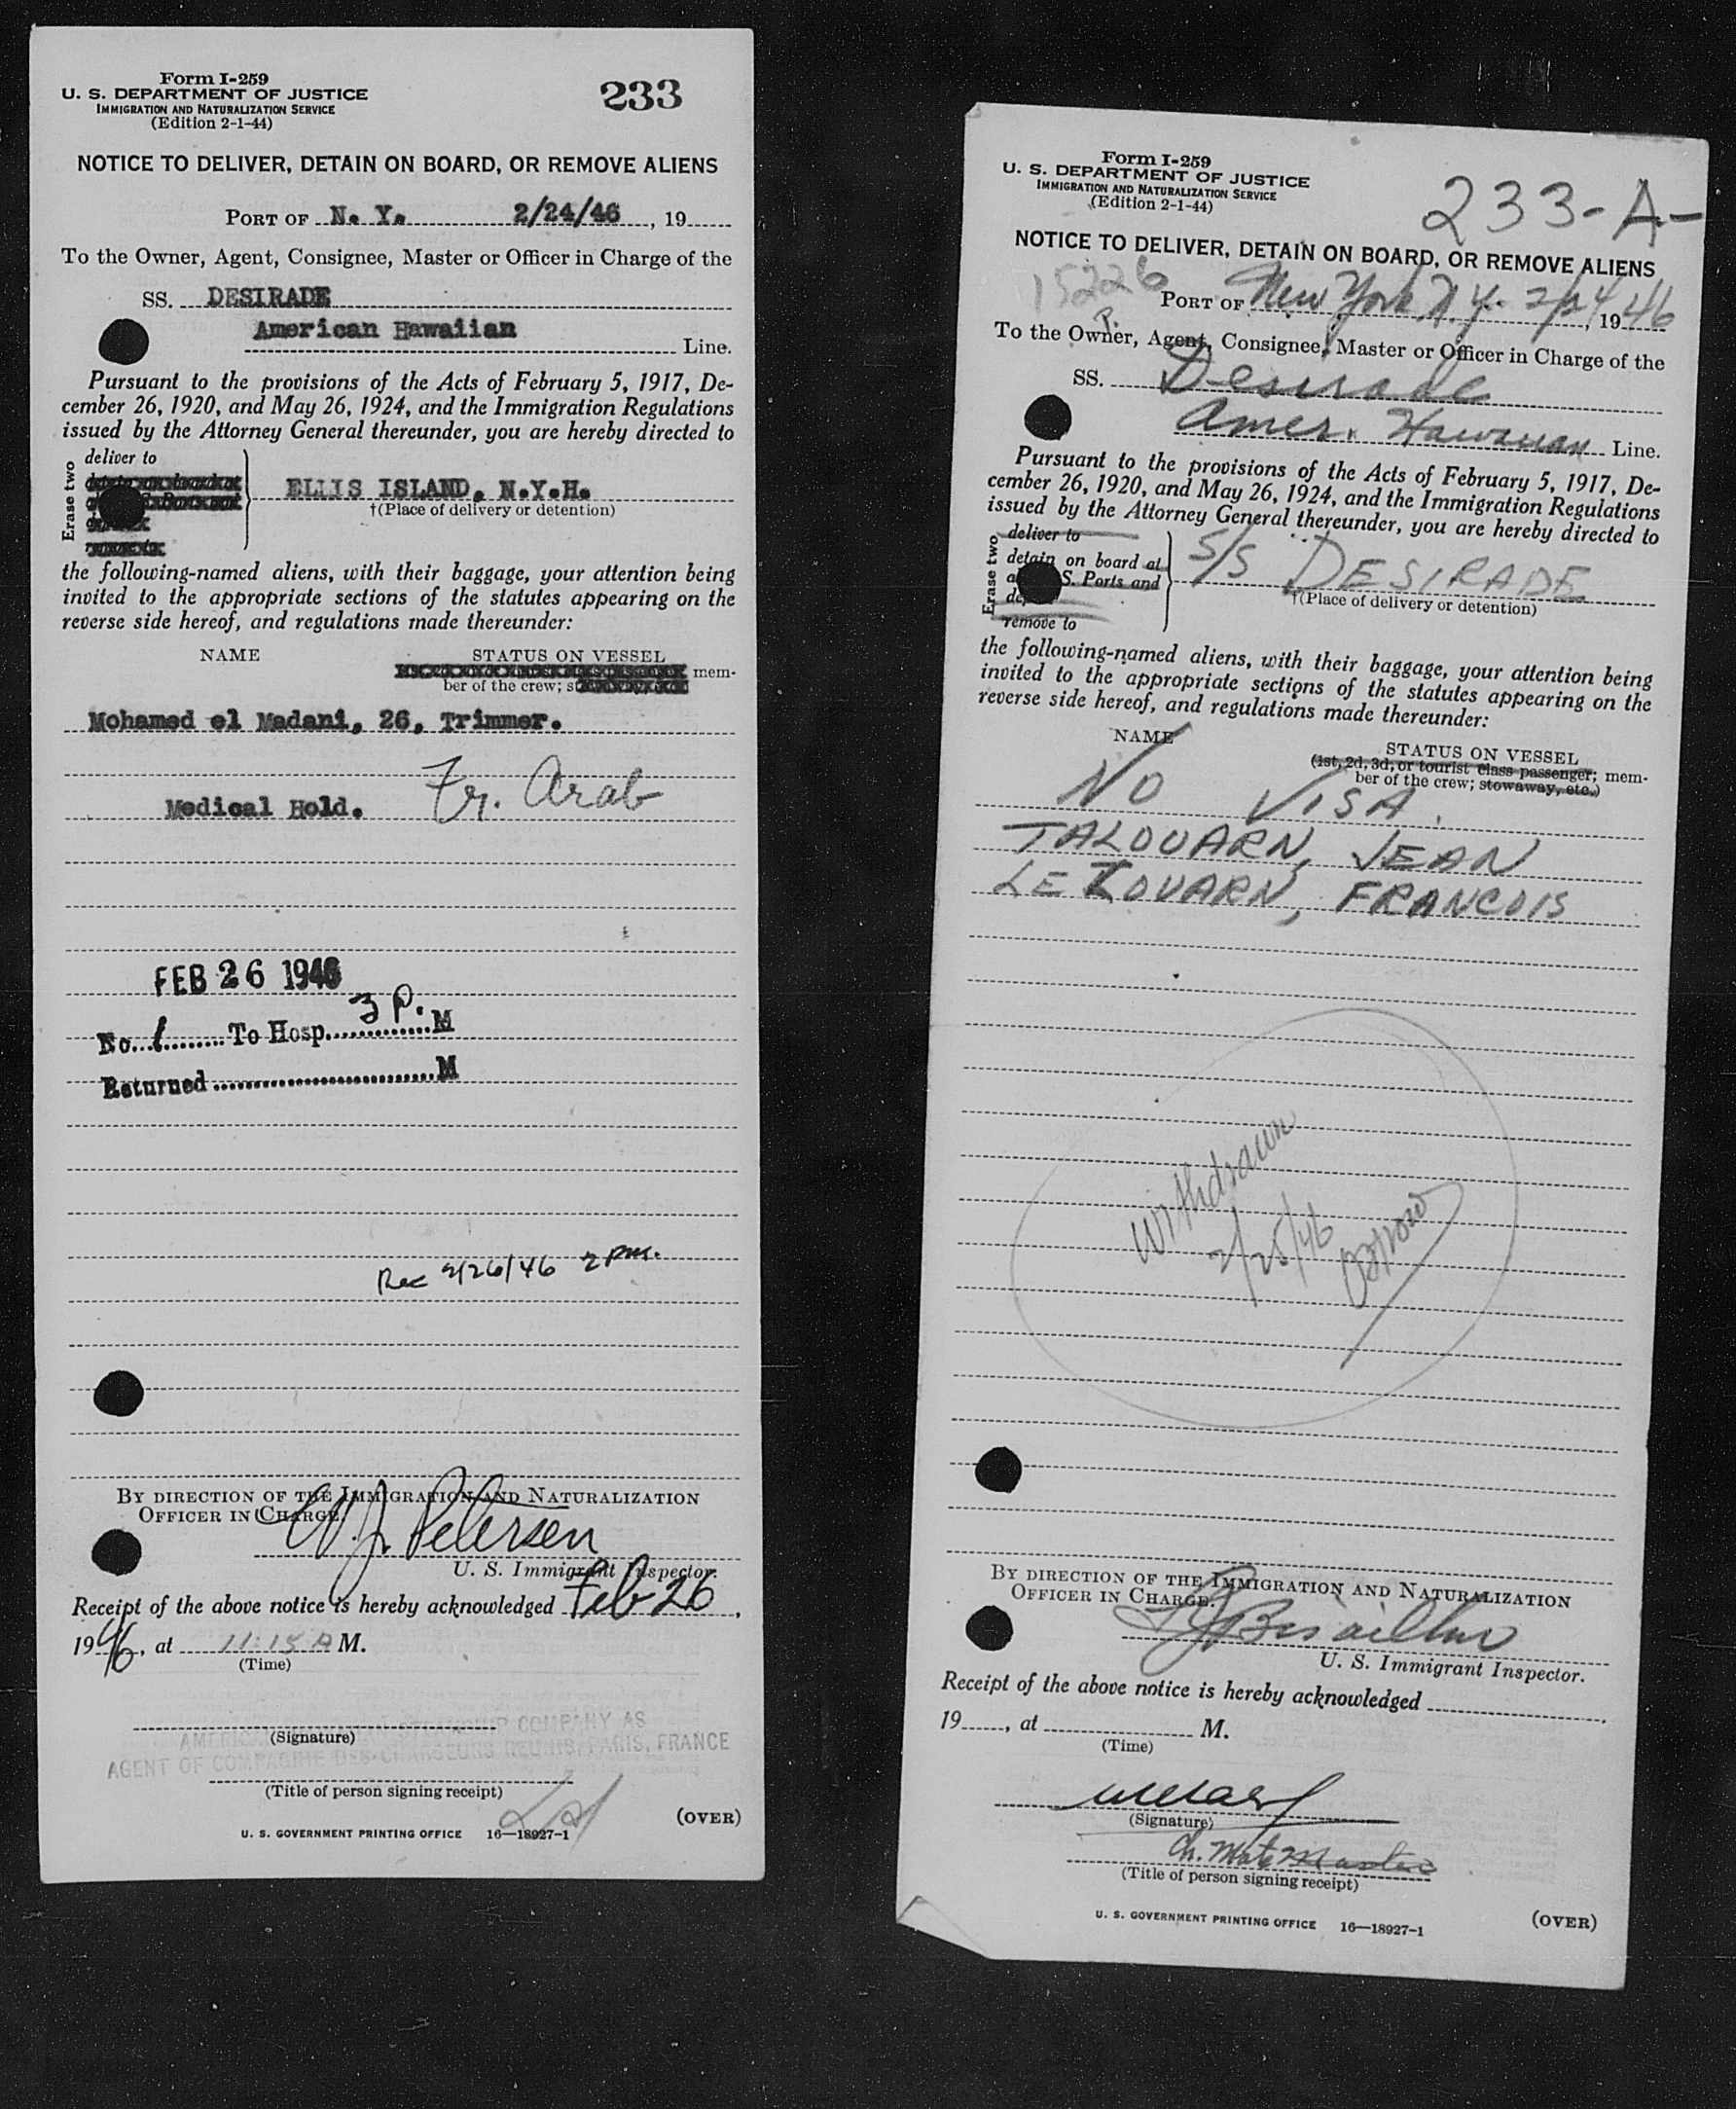 Form I-259
U. S. DEPARTMENT OF JUSTICE
IMMIGRATION AND NATURALIZATION SERVICE
(Edition 2-1-44)
233
NOTICE TO DELIVER, DETAIN ON BOARD, OR REMOVE ALIENS
PORT OF N. Y. 2/24/46, 19
To the Owner, Agent, Consignee, Master or Officer in Charge of the
SS. DESIRADE
American Hawaiian Line.
Pursuant to the provisions of the Acts of February 5, 1917, De-
cember 26, 1920, and May 26, 1924, and the Immigration Regulations
issued by the Attorney General thereunder, you are hereby directed to
Erase two
deliver to
ELLIS ISLAND, N.Y.H.
†(Place of delivery or detention)
the following-named aliens, with their baggage, your attention being
invited to the appropriate sections of the statutes appearing on the
reverse side hereof, and regulations made thereunder:
NAME STATUS ON VESSEL
mem-
ber of the crew;
Mohamed el Madani, 26, Trimmer.
Medical Hold. Fr. Arab
FEB 26 1946
No. 1 To Hosp. 3 P. M
Returned M
Rec 2/26/46 2 pm.
BY DIRECTION OF THE IMMIGRATION AND NATURALIZATION
OFFICER IN CHARGE.
W. J. Petersen
U. S. Immigrant Inspector.
Receipt of the above notice is hereby acknowledged Feb 26,
1946, at 11:15 A M.
(Time)
(Signature)
STEAMSHIP COMPANY AS
AGENT OF COMPAGNIE DES CHARGEURS REUNIS, PARIS, FRANCE
(Title of person signing receipt)
(OVER)
U. S. GOVERNMENT PRINTING OFFICE 16—18927-1
Form I-259
U. S. DEPARTMENT OF JUSTICE
IMMIGRATION AND NATURALIZATION SERVICE
(Edition 2-1-44)
233-A-
NOTICE TO DELIVER, DETAIN ON BOARD, OR REMOVE ALIENS
15226
P.
PORT OF New York N.Y. 2/24, 1946
To the Owner, Agent, Consignee, Master or Officer in Charge of the
SS. Desirade
Amer. Hawaiian Line.
Pursuant to the provisions of the Acts of February 5, 1917, De-
cember 26, 1920, and May 26, 1924, and the Immigration Regulations
issued by the Attorney General thereunder, you are hereby directed to
Erase two
deliver to
detain on board at
S. Ports and
remove to
S/S DESIRADE
†(Place of delivery or detention)
the following-named aliens, with their baggage, your attention being
invited to the appropriate sections of the statutes appearing on the
reverse side hereof, and regulations made thereunder:
NAME STATUS ON VESSEL
(1st, 2d, 3d, or tourist class passenger; mem-
ber of the crew; stowaway, etc.)
NO VISA.
TALOUARN, JEAN
LE ZOUARN, FRANCOIS
Withdrawn
2/25/46
BY DIRECTION OF THE IMMIGRATION AND NATURALIZATION
OFFICER IN CHARGE.
U. S. Immigrant Inspector.
Receipt of the above notice is hereby acknowledged
19, at M.
(Time)
(Signature)
Ch. Mate Master
(Title of person signing receipt)
U. S. GOVERNMENT PRINTING OFFICE 16—18927-1
(OVER)